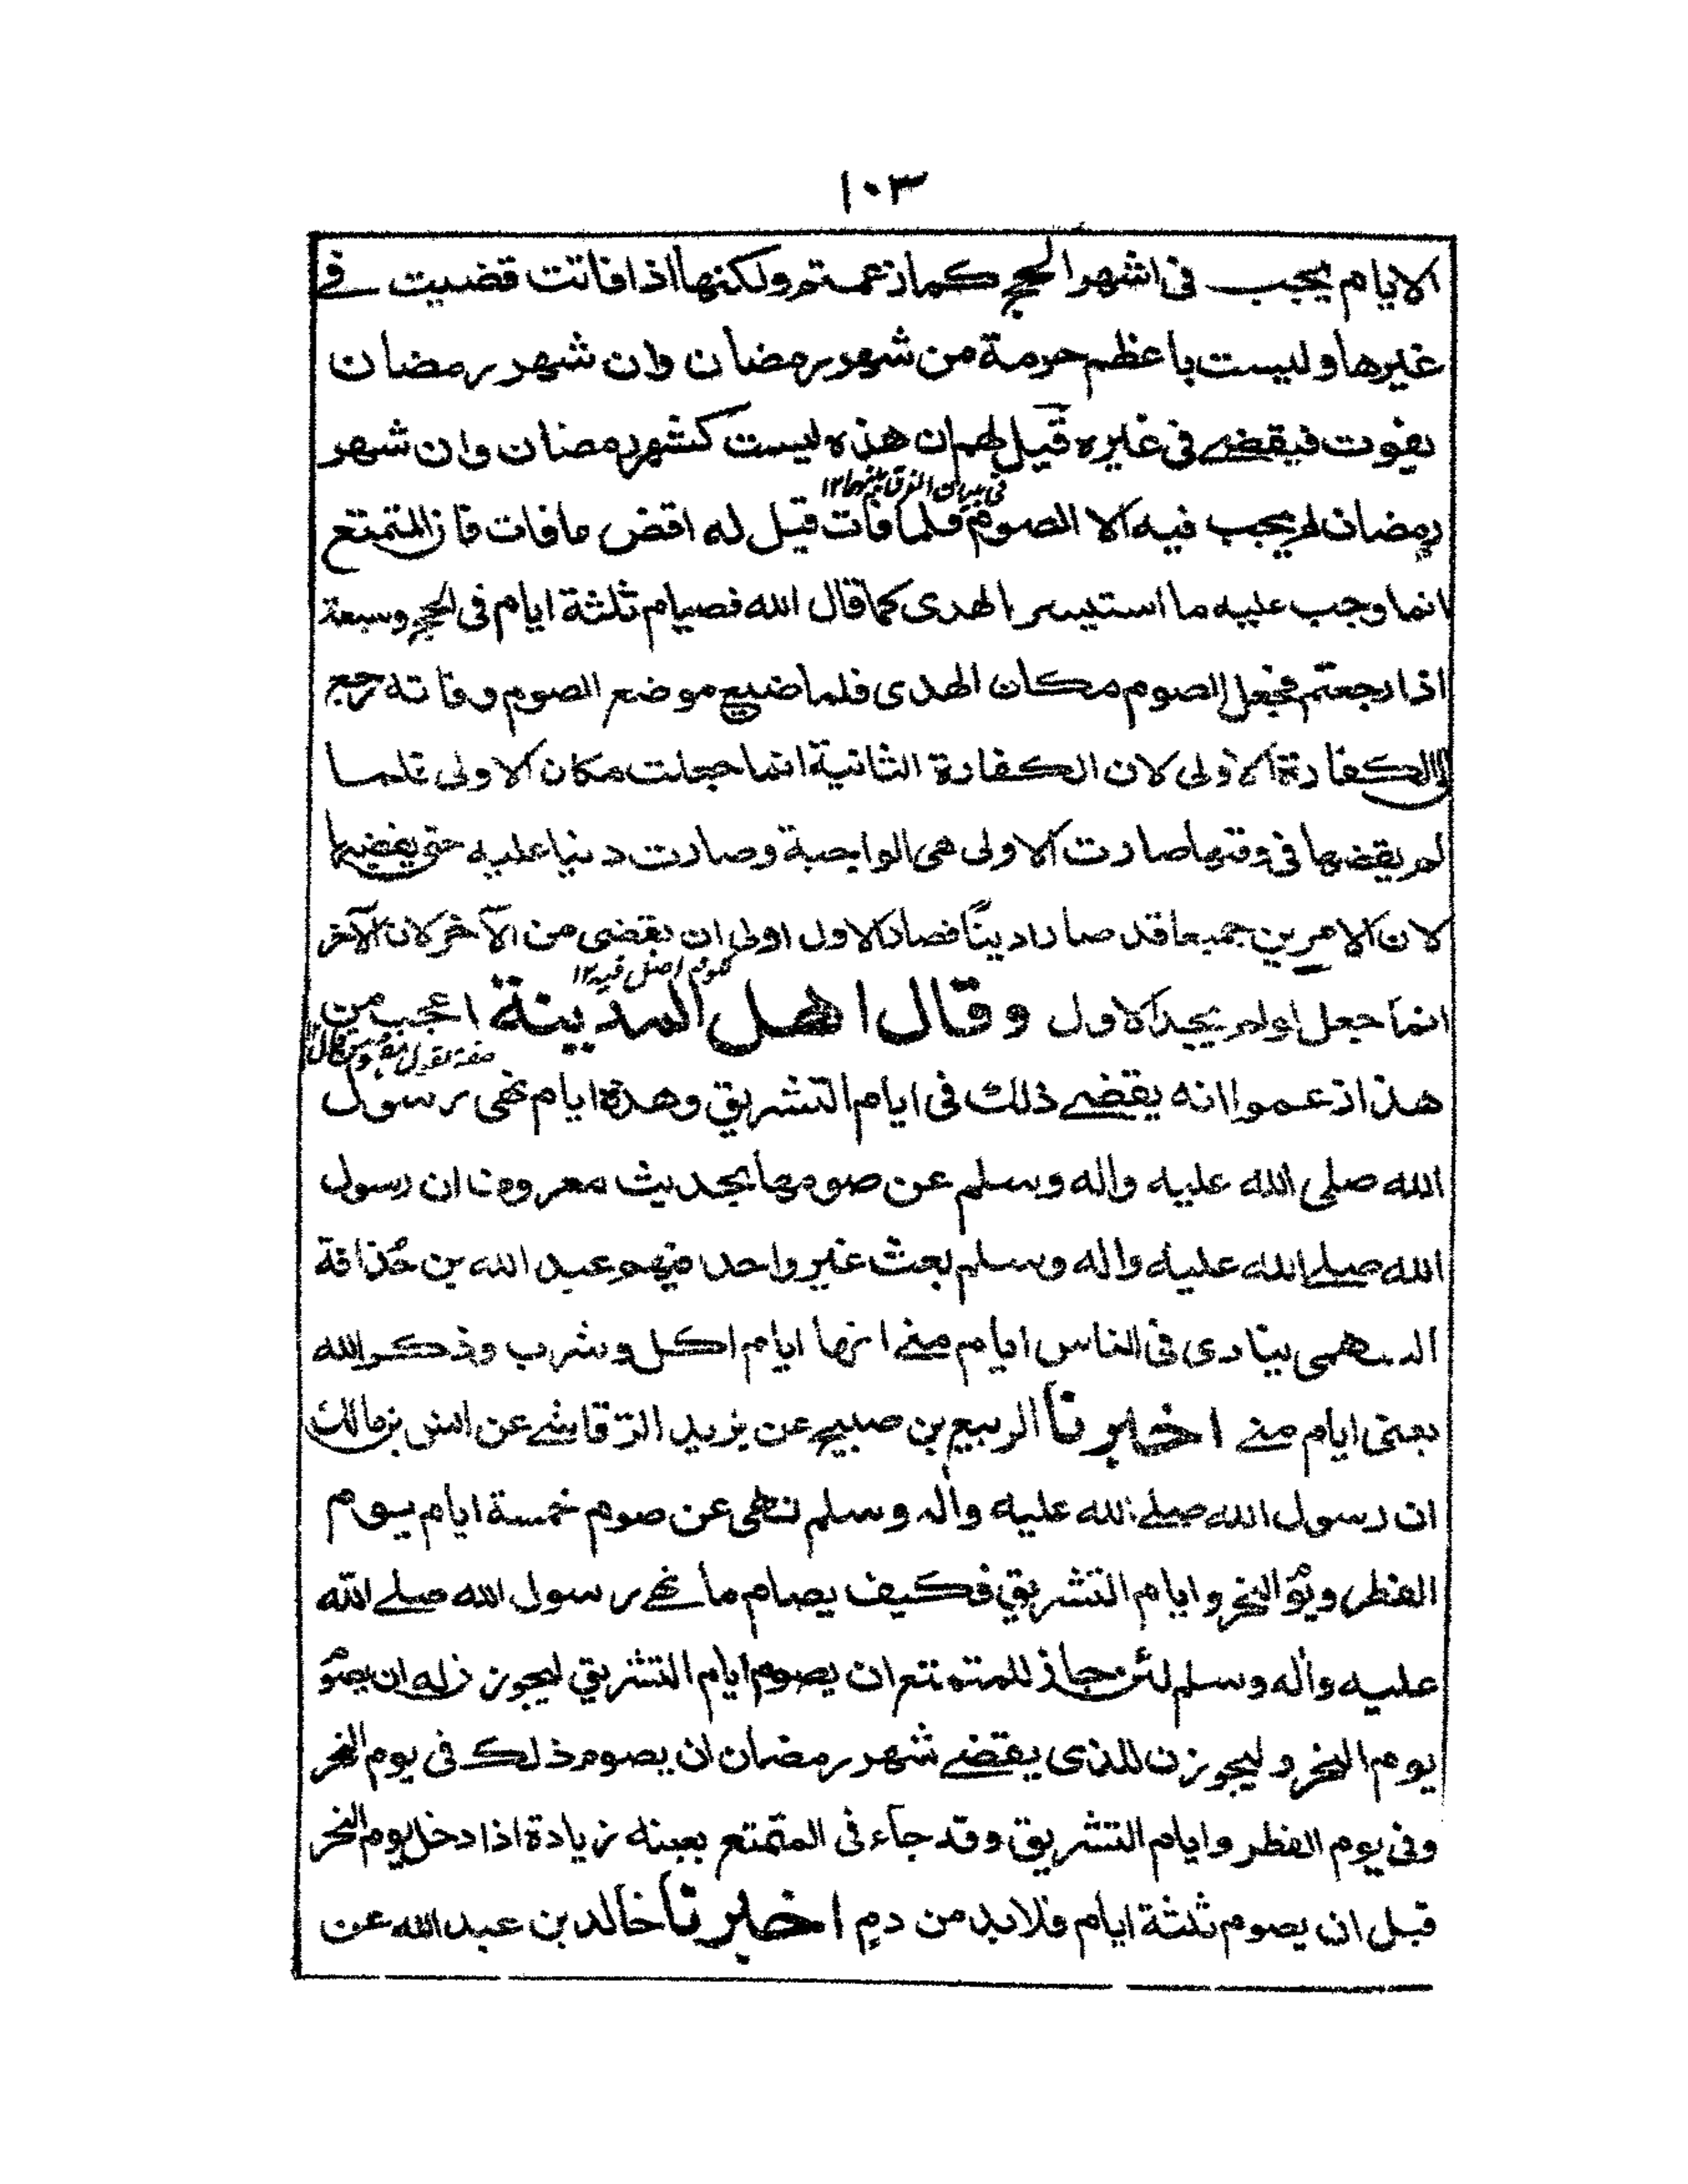 ١٠٣
الايام يجب فى اشهر الحج كما زعمتم ولكنها اذا فاتت قضيت فے
غيرها وليست باعظم حرمة من شهر رمضان وان شهر رمضان
يفوت فيقضے فى غيره قيل لهم ان هذه ليست كشهر رمضان وان شهر
فى بيان الفرق بينهما ١٢
رمضان لم يجب فيه الا الصوم فلما فات قيل له اقض ما فات فان المتمتع
انما وجب عليه ما استيسر الهدى كما قال الله فصيام ثلثة ايام فى الحج وسبعة
اذا رجعتم فجعل الصوم مكان الهدى فلما ضيع موضع الصوم وفاته رجع
الى الكفارة الاولى لان الكفارة الثانية انما جعلت مكان الاولى فلما
لم يقضها فى وقتها صارت الاولى هى الواجبة وصارت دينا عليه حتى يقضيها
لان الامرين جميعا قد صارا دينًا فصار الاول اولى ان يقضى من الآخر لان الآخر
انما جعل لو لم يجد الاول وقال اهل المدينة اعجب من
هذا زعموا انه يقضے ذلك فى ايام التشريق وهذه ايام نهى رسول
الله صلى الله عليه واله وسلم عن صومها بحديث معروف ان رسول
الله صلے الله عليه واله وسلم بعث غير واحد فيهم عبد الله بن حُذافة
السهمى ينادى فى الناس ايام منے انها ايام اكل وشرب وذكر الله
يعنى ايام منے اخبرنا الربيع بن صبيح عن يزيد الرّقاشے عن انس بن مالك
ان رسول الله صلے الله عليه واله وسلم نهى عن صوم خمسة ايام يوم
الفطر ويوم النحر وايام التشريق فكيف يصام ما نهے رسول الله صلے الله
عليه واله وسلم لئن جاز للمتمتع ان يصوم ايام التشريق ليجوزن له ان يصوم
يوم النحر وليجوزن للذى يقضے شهر رمضان ان يصوم ذلك فى يوم النحر
وفى يوم الفطر وايام التشريق وقد جاء فى المتمتع بعينه زيادة اذا دخل يوم النحر
قبل ان يصوم ثلثة ايام فلا بد من دمٍ اخبرنا خالد بن عبد الله عن